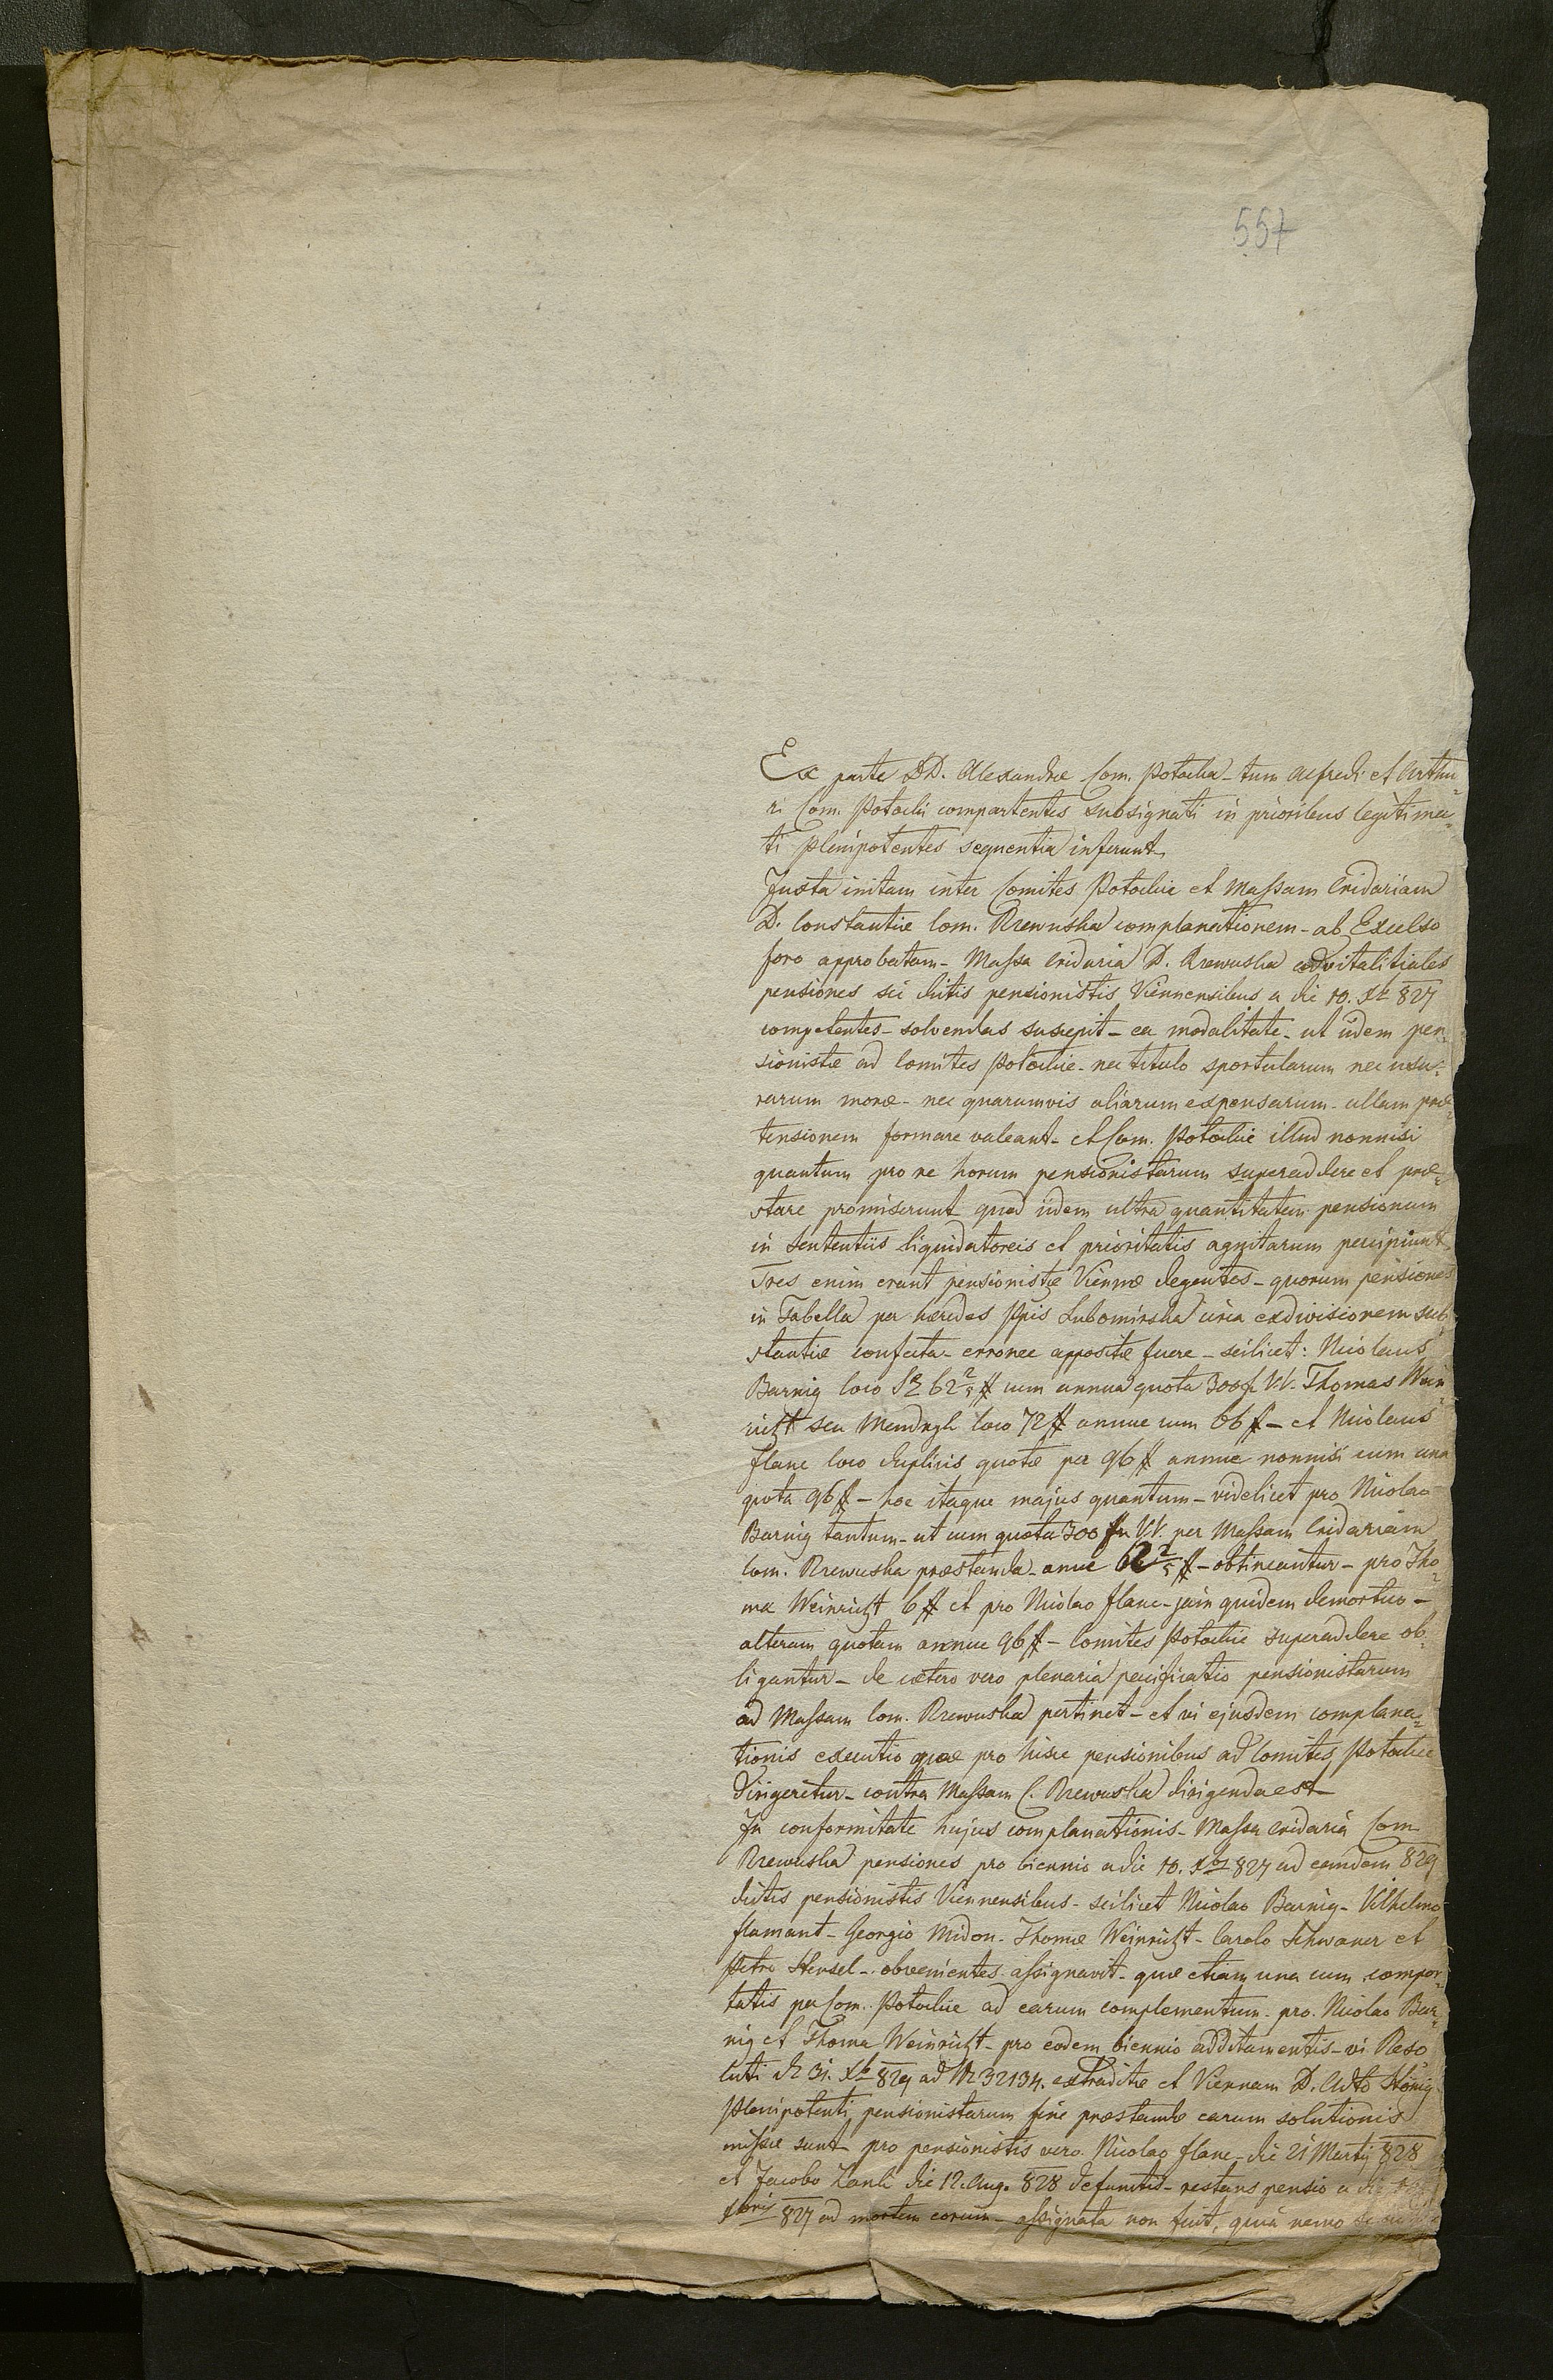 557
Ex parte DD. Alexandræ Com. Potocka – tum Alfredi et Arthu=
ri Com. Potockii compartentes subsignati in prioribus legitima=
ti Plenipotentes sequentia inferunt
Juxta initam inter Comites Potockie et Massam Cridariam
D. Constantiæ Com. Rzewuska complanationem – ab Excelso
foro approbatam – Massa Cridaria D. Rzewuska advitalitiales
pensiones sei dictis pensionistis Viennensibus a die 10. Xb 827
competentes – solvendas suscepit – ea modalitate – ut iidem pen=
sionistæ ad Comites Potockie – nec titulo sportularum nec usu=
rarum moræ – nec quarumvis aliarum expensarum – ullam præ=
tensionem formare valeant – et Com. Potockie illud nonnisi
quantum pro re horum pensionistarum superaddere et præ=
stare promiserunt quod iidem ultra quantitatem pensionum
in sententiis liquidatoreis et prioritatis agnitarum percipiunt
Tres enim erant pensionistæ Viennæ degentes – quorum pensiones
in Tabella per hæredes Ppis Lubomirska circa exdivisionem sub=
stantiæ confecta – erronee appositæ fuere – scilicet: Nicolaus
Barnig loco 62 2/5 # cum annua quota 300 f. V.V. Thomas Wein=
richt seu Mendrgh loco 72 # annue cum 66 # – et Nicolaus
Flanc loco duplicis quotæ per 96 # annue nonnisi cum una
quota 96 # – hoc itaque majus quantum – videlicet pro Nicolao
Barnig tantum – ut cum quota 300 fr V.V. per Massam Cridariam
Com. Rzewuska præstanda – anue 62 2/5 # – obtineantur – pro Tho=
ma Weinricht 6 # et pro Nicolao Flanc – jam quidem demortuo –
alteram quotam annue 96 # – Comites Potockie superaddere ob=
ligantur – de cætero vero plenaria pacificatio pensionistarum
ad Massam Com. Rzewuska pertinet – et vi ejusdem complana=
tionis executio quæ pro hisce pensionibus ad Comites Potockie
dirigeretur – contra Massam C. Rzewuska dirigenda est
In conformitate hujus complanationis – Massa cridaria Com
Rzewuska pensiones pro biennio a die 10. Xbr 827 ad eamdem 829
dictis pensionistis Viennensibus – scilicet Nicolao Barnig – Vilhelmo
Flamant – Georgio Midon – Thomæ Weinricht – Carolo Schwaner et
Petro Hensel – obvenientes assignavit – quæ etiam una cum compor=
tatis per Com. Potockie ad earum complementum – pro Nicolao Bar=
nig et Thoma Weinricht – pro eodem biennio additamentis – vi Reso
luti de 31. Xb 829 ad N 32134. extraditæ et Viennam D. Adto König
Plenipotenti pensionistarum fine præstandæ earum solutionis
missæ sunt pro pensionistis vero Nicolao Flanc – die 21 Martij 828
et Jacobo Zank die 12. Aug. 828 defunctis – restans pensio a die 10
Xbris 827 ad mortem eorum – assignata non fuit, quia nemo